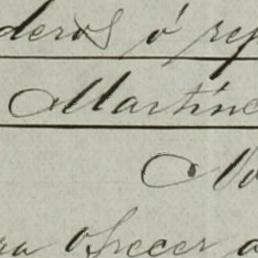 deros ó rep
Martínc
No
ra ofrecer a